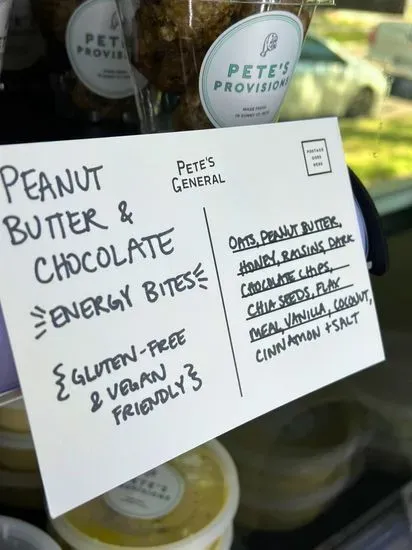 PETE'S
PROVISIONS
PETE'S
PROVISIONS
MADE FRESH
PEANUT
BUTTER &
CHOCOLATE
ENERGY BITES
{GLUTEN-FREE
& VEGAN
FRIENDLY}
PETE'S
GENERAL
POSTAGE
GOES
HERE
OATS, PEANUT BUTTER,
HONEY, RAISINS, DARK
CHOCOLATE CHIPS,
CHIA SEEDS, FLAX
MEAL, VANILLA, COCONUT,
CINNAMON + SALT
PETE'S
PROVISIONS